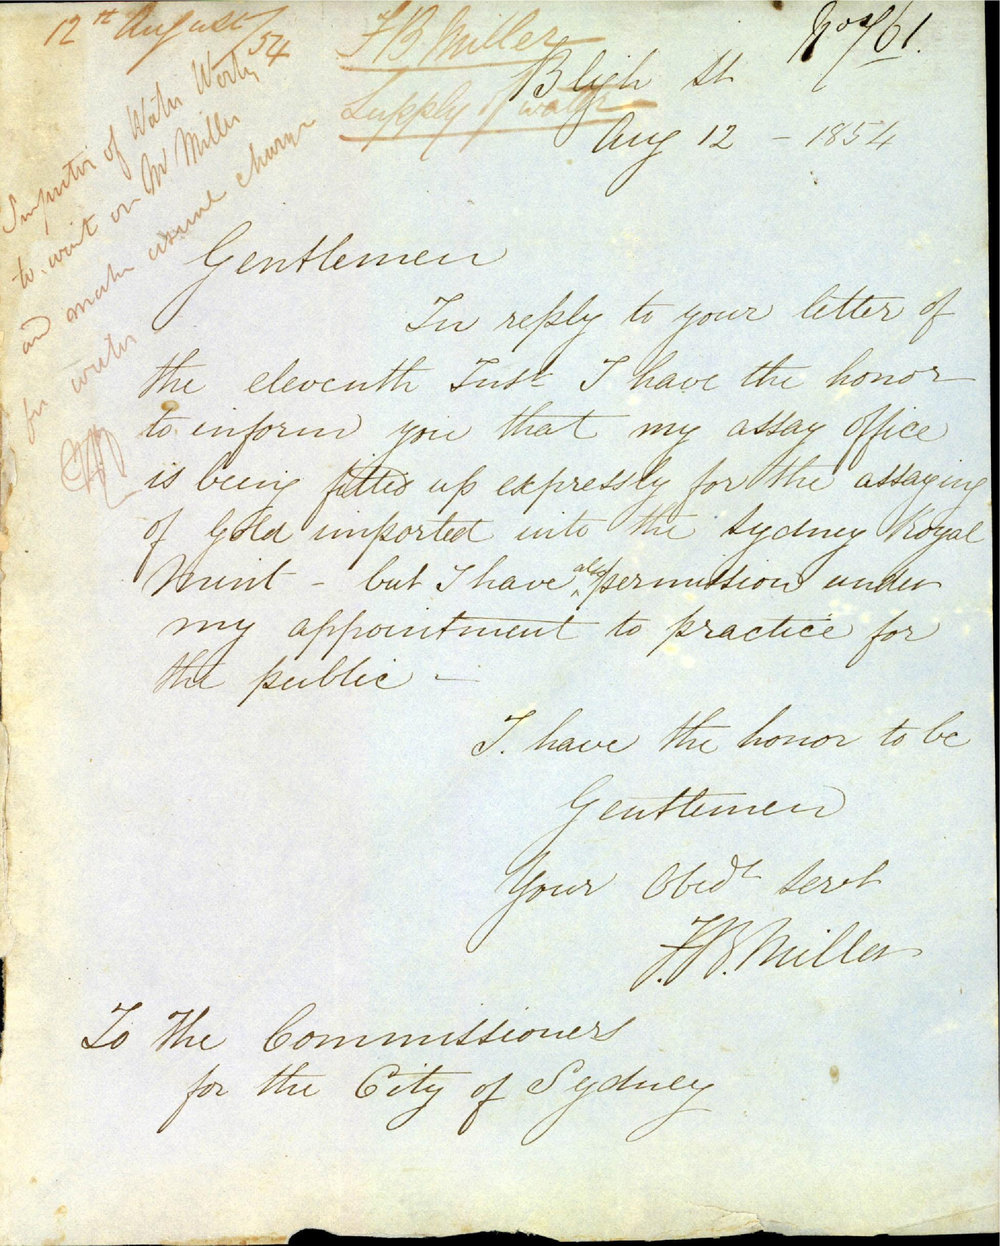 12th August /54
F B Miller
Supply of water
No 761.
Bligh St
Aug 12 - 1854
Inspector of Water Works
to wait on Mr Miller
and make usual charge
for water
Gentlemen
In reply to your letter of
the eleventh Inst I have the honor
to inform you that my assay office
is being fitted up expressly for the assaying
of Gold imported into the Sydney Royal
Mint - but I have also permission under
my appointment to practice for
the public -
I have the honor to be
Gentlemen
Your Obedt servt
F.B. Miller
To The Commissioners
for the City of Sydney